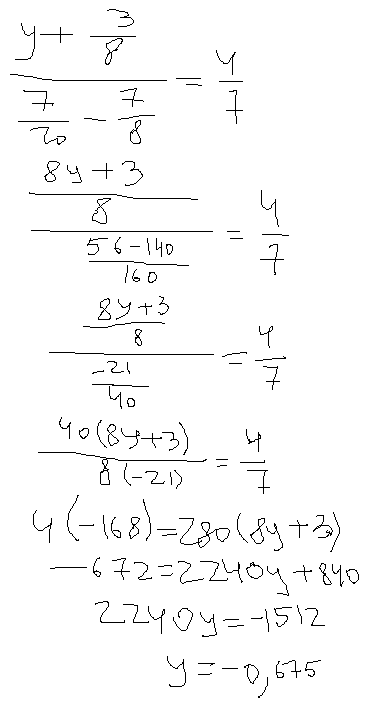 y + 3/8
7/20 - 7/8 = 4/7
8y + 3
8
56 - 140
160 = 4/7
8y + 3
8
-21
40 = 4/7
40(8y+3)
8(-21) = 4/7
4(-168) = 280(8y+3)
-672 = 2240y + 840
2240y = -1512
y = -0,675